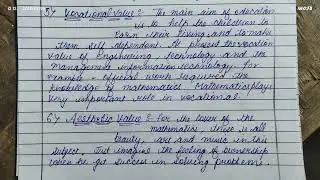 5) Vocational Value : The main aim of education
is to help the children to
earn their living and to make
them self dependent. At present the vocation
value of Engineering, technology and the
management information technology for
example - official work required the
knowledge of mathematics. Mathematics plays
very important role in vocational.
6) Aesthetic value : For the lover of the
mathematics, there is all
beauty, art and music in the
subject. Just imagine the feeling of ownership
when he get success in solving problems.